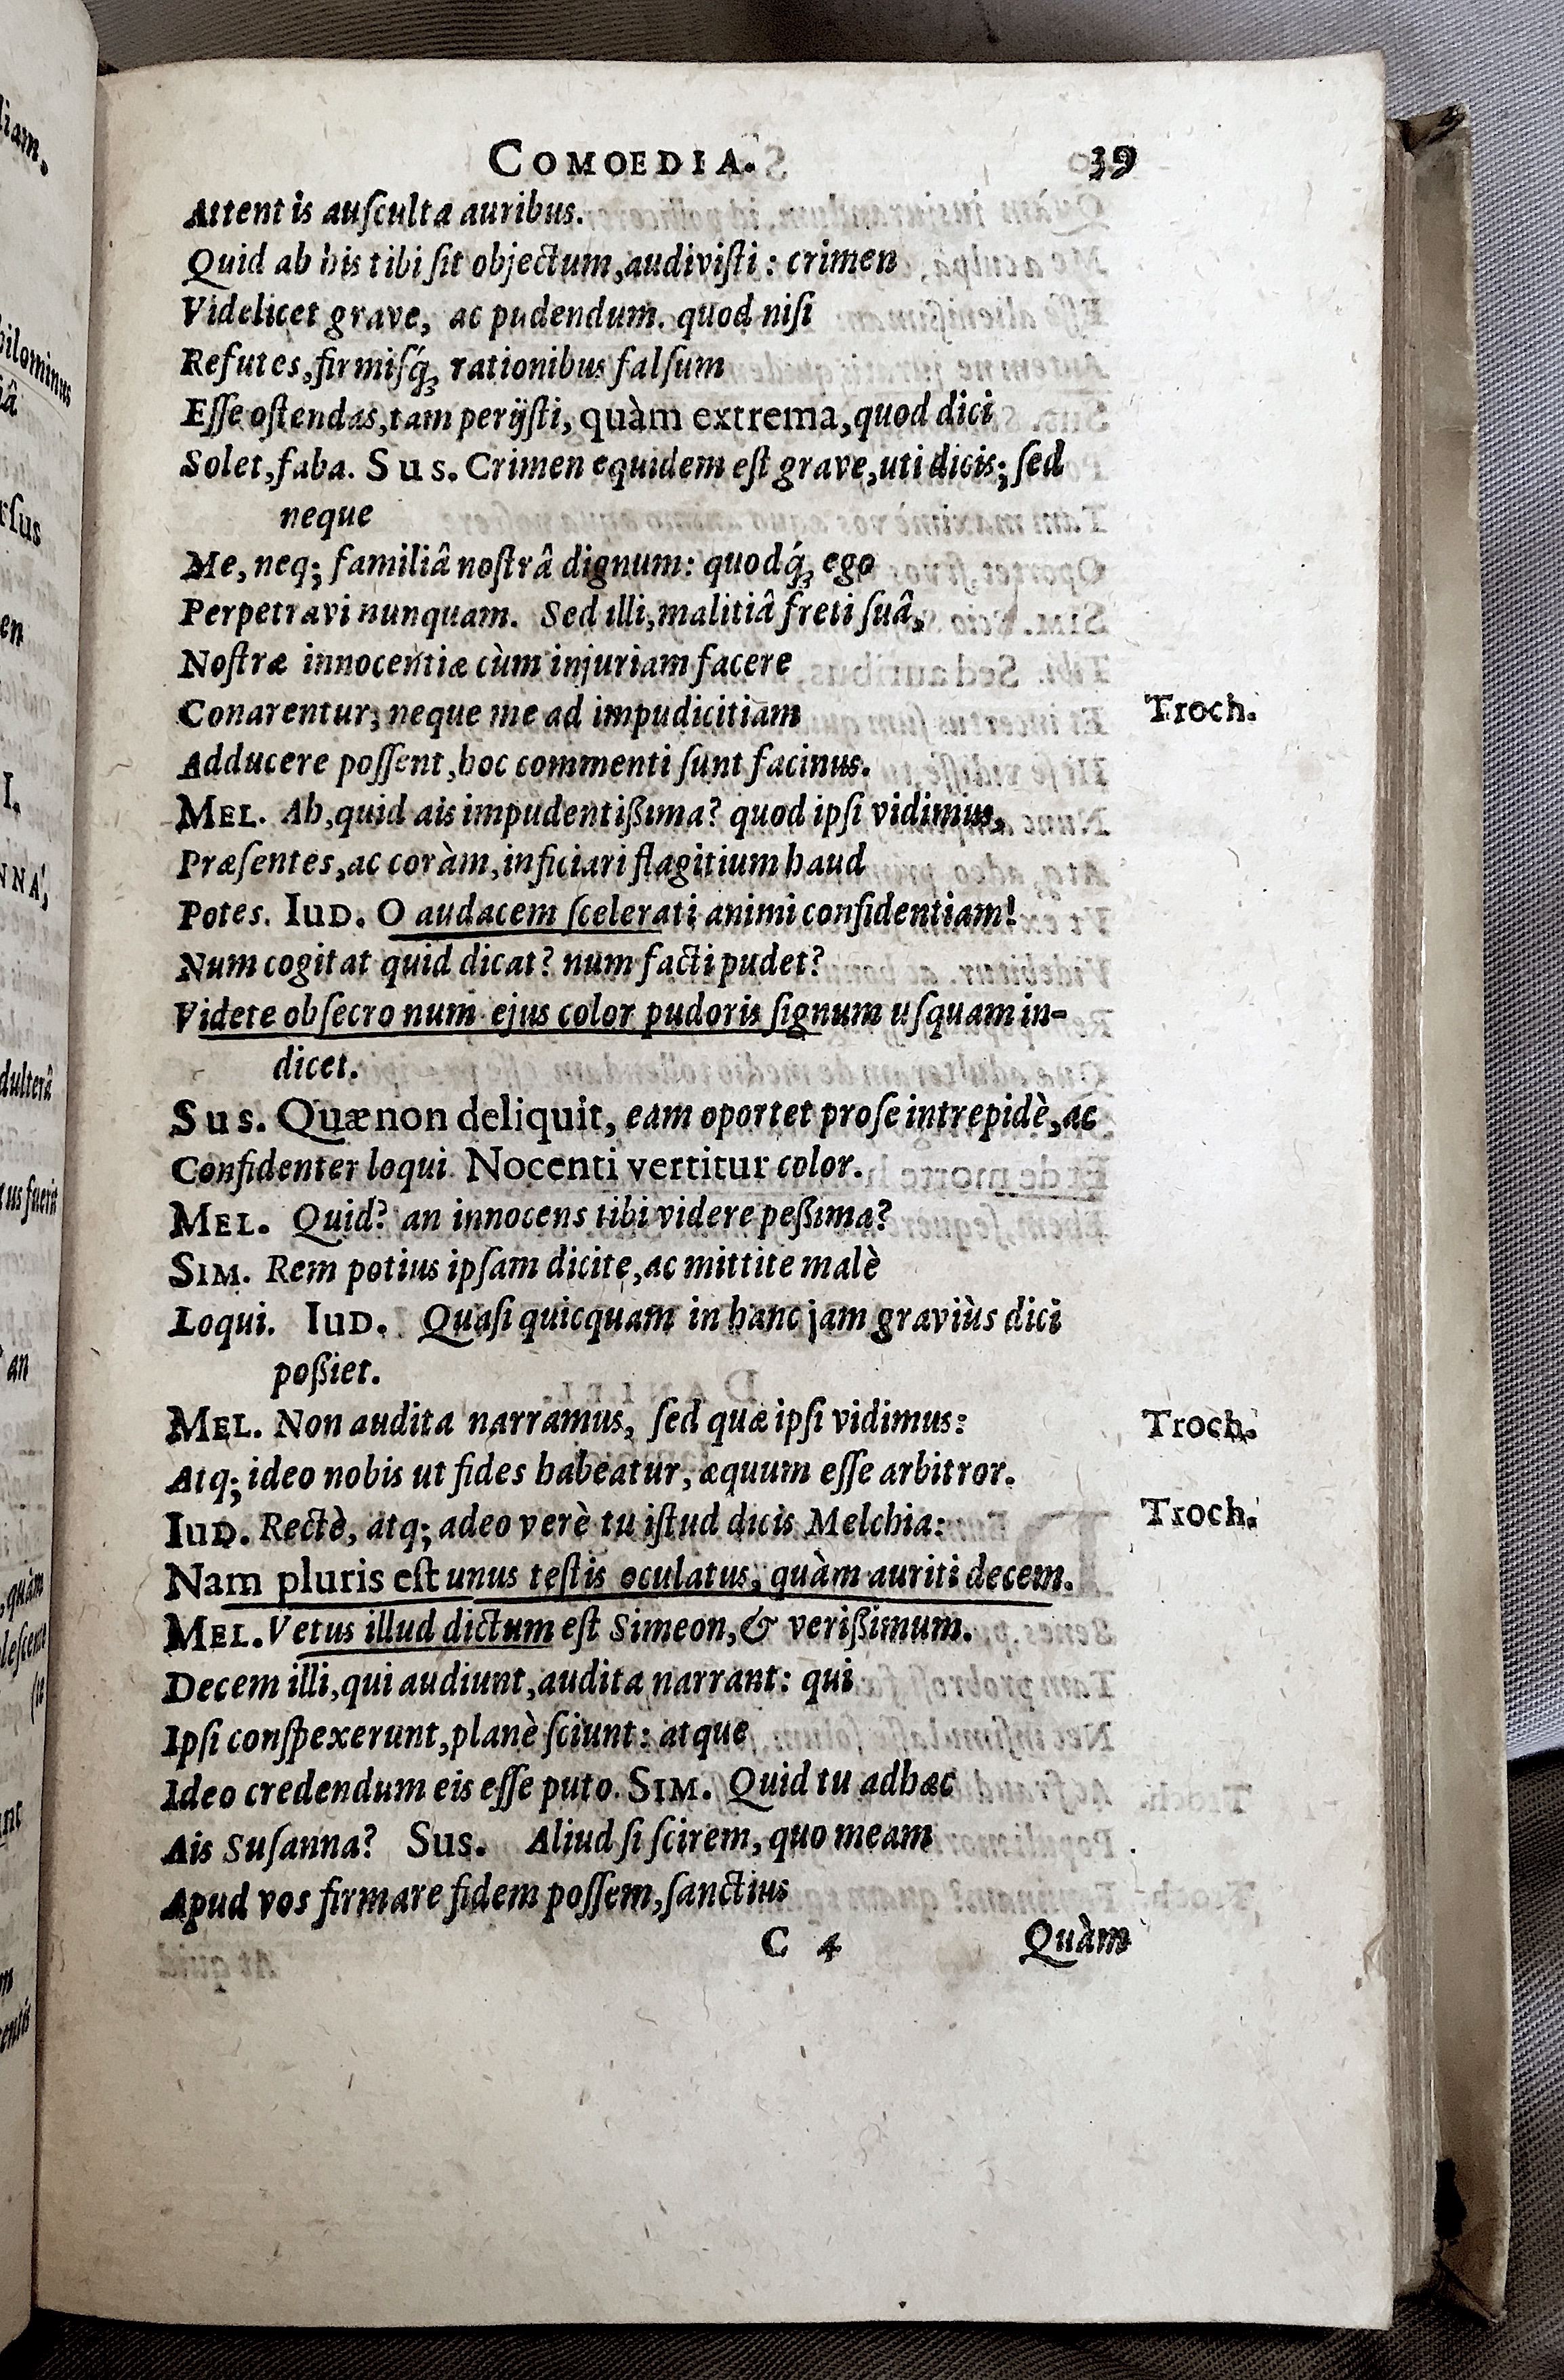 COMOEDIA. 39
Attentis auſculta auribus.
Quid ab his tibi ſit objectum, audiviſti: crimen
Videlicet grave, ac pudendum. quod niſi
Refutes, firmiſq́; rationibus falſum
Eſſe oſtendas, tam perijſti, quàm extrema, quod dici
Solet, faba. Sus. Crimen equidem eſt grave, uti dicis; ſed
neque
Me, neq; familiâ noſtrâ dignum: quodq́; ego
Perpetravi nunquam. Sed illi, malitiâ freti ſuâ,
Noſtræ innocentiæ cùm injuriam facere
Conarentur; neque me ad impudicitiam Troch.
Adducere poſſent, hoc commenti ſunt facinus.
MEL. Ah, quid ais impudentißima? quod ipſi vidimus,
Præſentes, ac coràm, inficiari flagitium haud
Potes. IUD. O audacem ſcelerati animi confidentiam!
Num cogitat quid dicat? num facti pudet?
Videte obſecro num ejus color pudoris ſignum uſquam in-
dicet.
Sus. Quæ non deliquit, eam oportet pro ſe intrepidè, ac
Confidenter loqui. Nocenti vertitur color.
MEL. Quid? an innocens tibi videre peßima?
SIM. Rem potius ipſam dicite, ac mittite malè
Loqui. IUD. Quaſi quicquam in hanc jam graviùs dici
poßiet.
MEL. Non audita narramus, ſed quæ ipſi vidimus: Troch.
Atq; ideo nobis ut fides habeatur, æquum eſſe arbitror.
IUD. Rectè, atq; adeo verè tu iſtud dicis Melchia: Troch.
Nam pluris eſt unus teſtis oculatus, quàm auriti decem.
MEL. Vetus illud dictum eſt Simeon, & verißimum.
Decem illi, qui audiunt, audita narrant: qui
Ipſi conſpexerunt, planè ſciunt: atque
Ideo credendum eis eſſe puto. SIM. Quid tu ad hæc
Ais Suſanna? Sus. Aliud ſi ſcirem, quo meam
Apud vos firmare fidem poſſem, ſanctius
C 4 Quàm